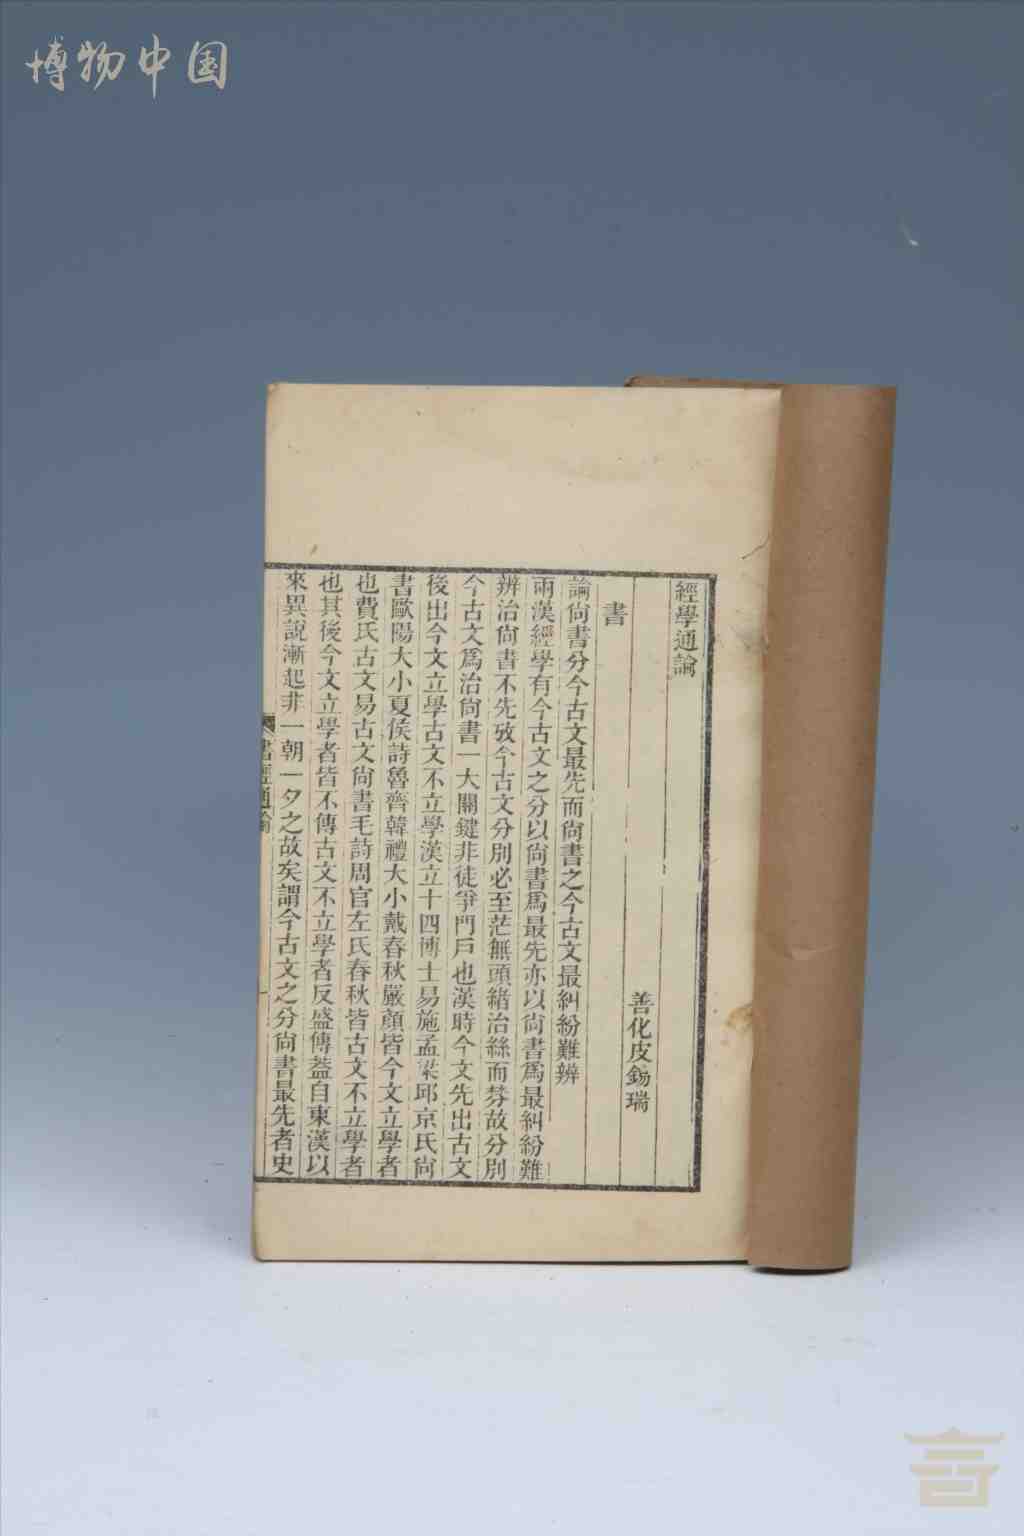 博物中国
經學通論
善化皮錫瑞
書
論尙書分今古文最先而尙書之今古文最糾紛難辨
兩漢經學有今古文之分以尙書爲最先亦以尙書爲最糾紛難
辨治尙書不先攷今古文分別必至茫無頭緒治絲而棼故分別
今古文爲治尙書一大關鍵非徒爭門戶也漢時今文先出古文
後出今文立學古文不立學漢立十四博士易施孟梁邱京氏尙
書歐陽大小夏侯詩魯齊韓禮大小戴春秋嚴顔皆今文立學者
也費氏古文易古文尙書毛詩周官左氏春秋皆古文不立學者
也其後今文立學者皆不傳古文不立學者反盛傳葢自東漢以
來異說漸起非一朝一夕之故矣謂今古文之分尙書最先者史
書經通論
一